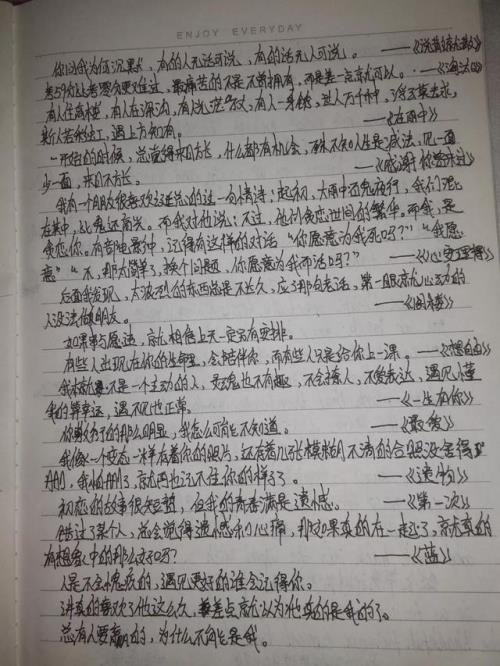 ENJOY EVERYDAY
你问我为何沉默,有的人无话可说,有的话无人可说。——《说散就散》
考59分比考零分更难过,最痛苦的不是不曾拥有,而是差一点就可以。——《淘汰》
有人住高楼,有人在深沟,有人光芒万丈,有人一身锈,世人万千种,浮云莫去求,
斯人若彩虹,遇上方知有。——《在雨中》
一开始的时候,总觉得来日方长,什么都有机会,殊不知人生是减法,见一面
少一面,来日不方长。——《感谢你曾来过》
我有一个朋友很喜欢这些悲的过一句情诗:起初,大雨中还
在其中,比谁还高兴。而我对他说:不过,他们贪恋世间的繁华。而我,是
贪恋你。有部电影中,记得有这样的对话“你愿意为我死吗?”“我愿
意”“不,那太简单了,换个问题,你愿意为我而活吗?”——《心安理得》
后面我发现,太浓烈的东西总是不长久,应了那句老话,第一眼就心动的
人没法做朋友。——《阁楼》
如果事与愿违,就相信上天一定另有安排。
有些人出现在你的生命里,会陪伴你,而有些人只是给你上一课。——《想自由》
我本就不是一个主动的人,灵魂也不有趣,不会撩人,不爱表达,遇见懂
我的算幸运,遇不见也正常。——《一生有你》
你敷衍的那么明显,我怎么可能不知道。——《最爱》
我像个变态一样存着你的照片,还有着几张模糊不清的合照没舍得
删,我怕删了,就再也记不住你的样子了。——《遗物》
初恋的故事很短暂,但我的青春满是遗憾。——《第一次》
错过了某个人,总会觉得遗憾和心痛,那如果真的在一起了,就光真的
有想象中的那么好吗?——《蓝》
人是不会愧疚的,遇见更好的谁会记得你。
讲真的喜欢了他这么久,差点就以为他真的是我的了。
总有人要赢的,为什么不可能是我。